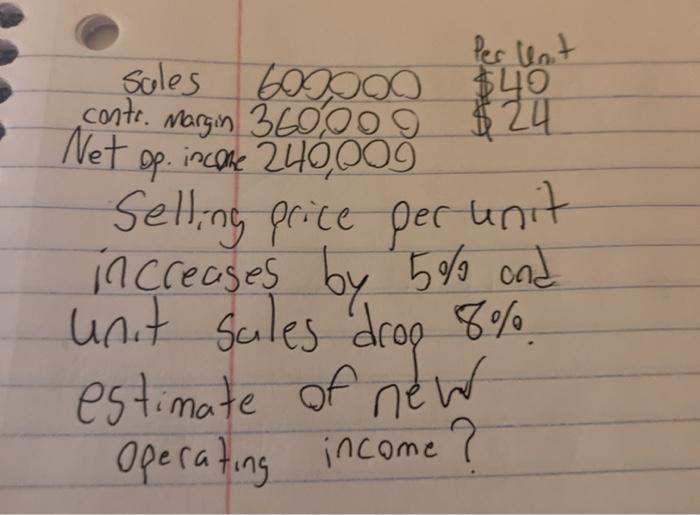 Per Unit
Sales 600,000 $40
contr. Margin 360,000 $24
Net op. income 240,000
Selling price per unit
increases by 5% and
unit sales drop 8%.
estimate of new
operating income?